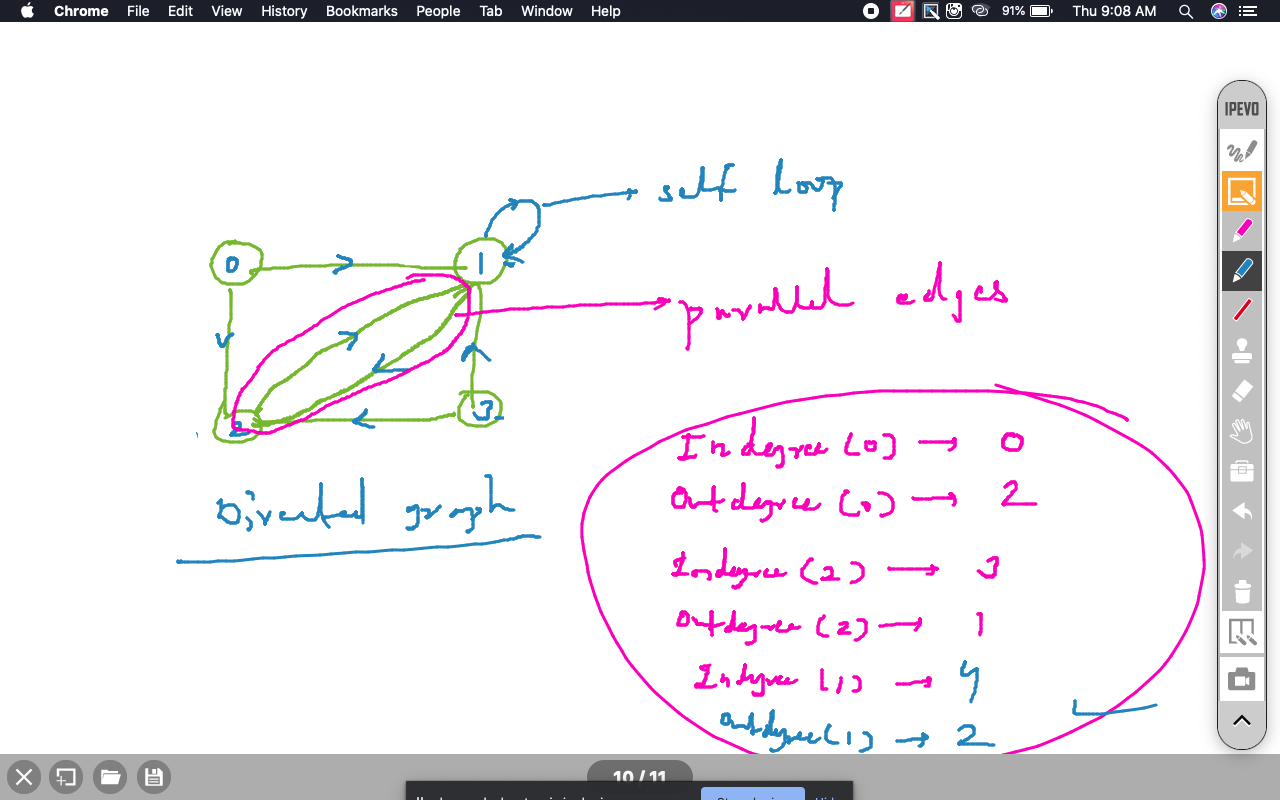 Chrome File Edit View History Bookmarks People Tab Window Help 91% Thu 9:08 AM
IPEVO
self loop
0 1
parallel edges
2 3
Indegree (0) → 0
Directed graph
Outdegree (0) → 2
Indegree (2) → 3
Outdegree (2) → 1
Indegree (1) → 4
Outdegree (1) → 2
10 / 11